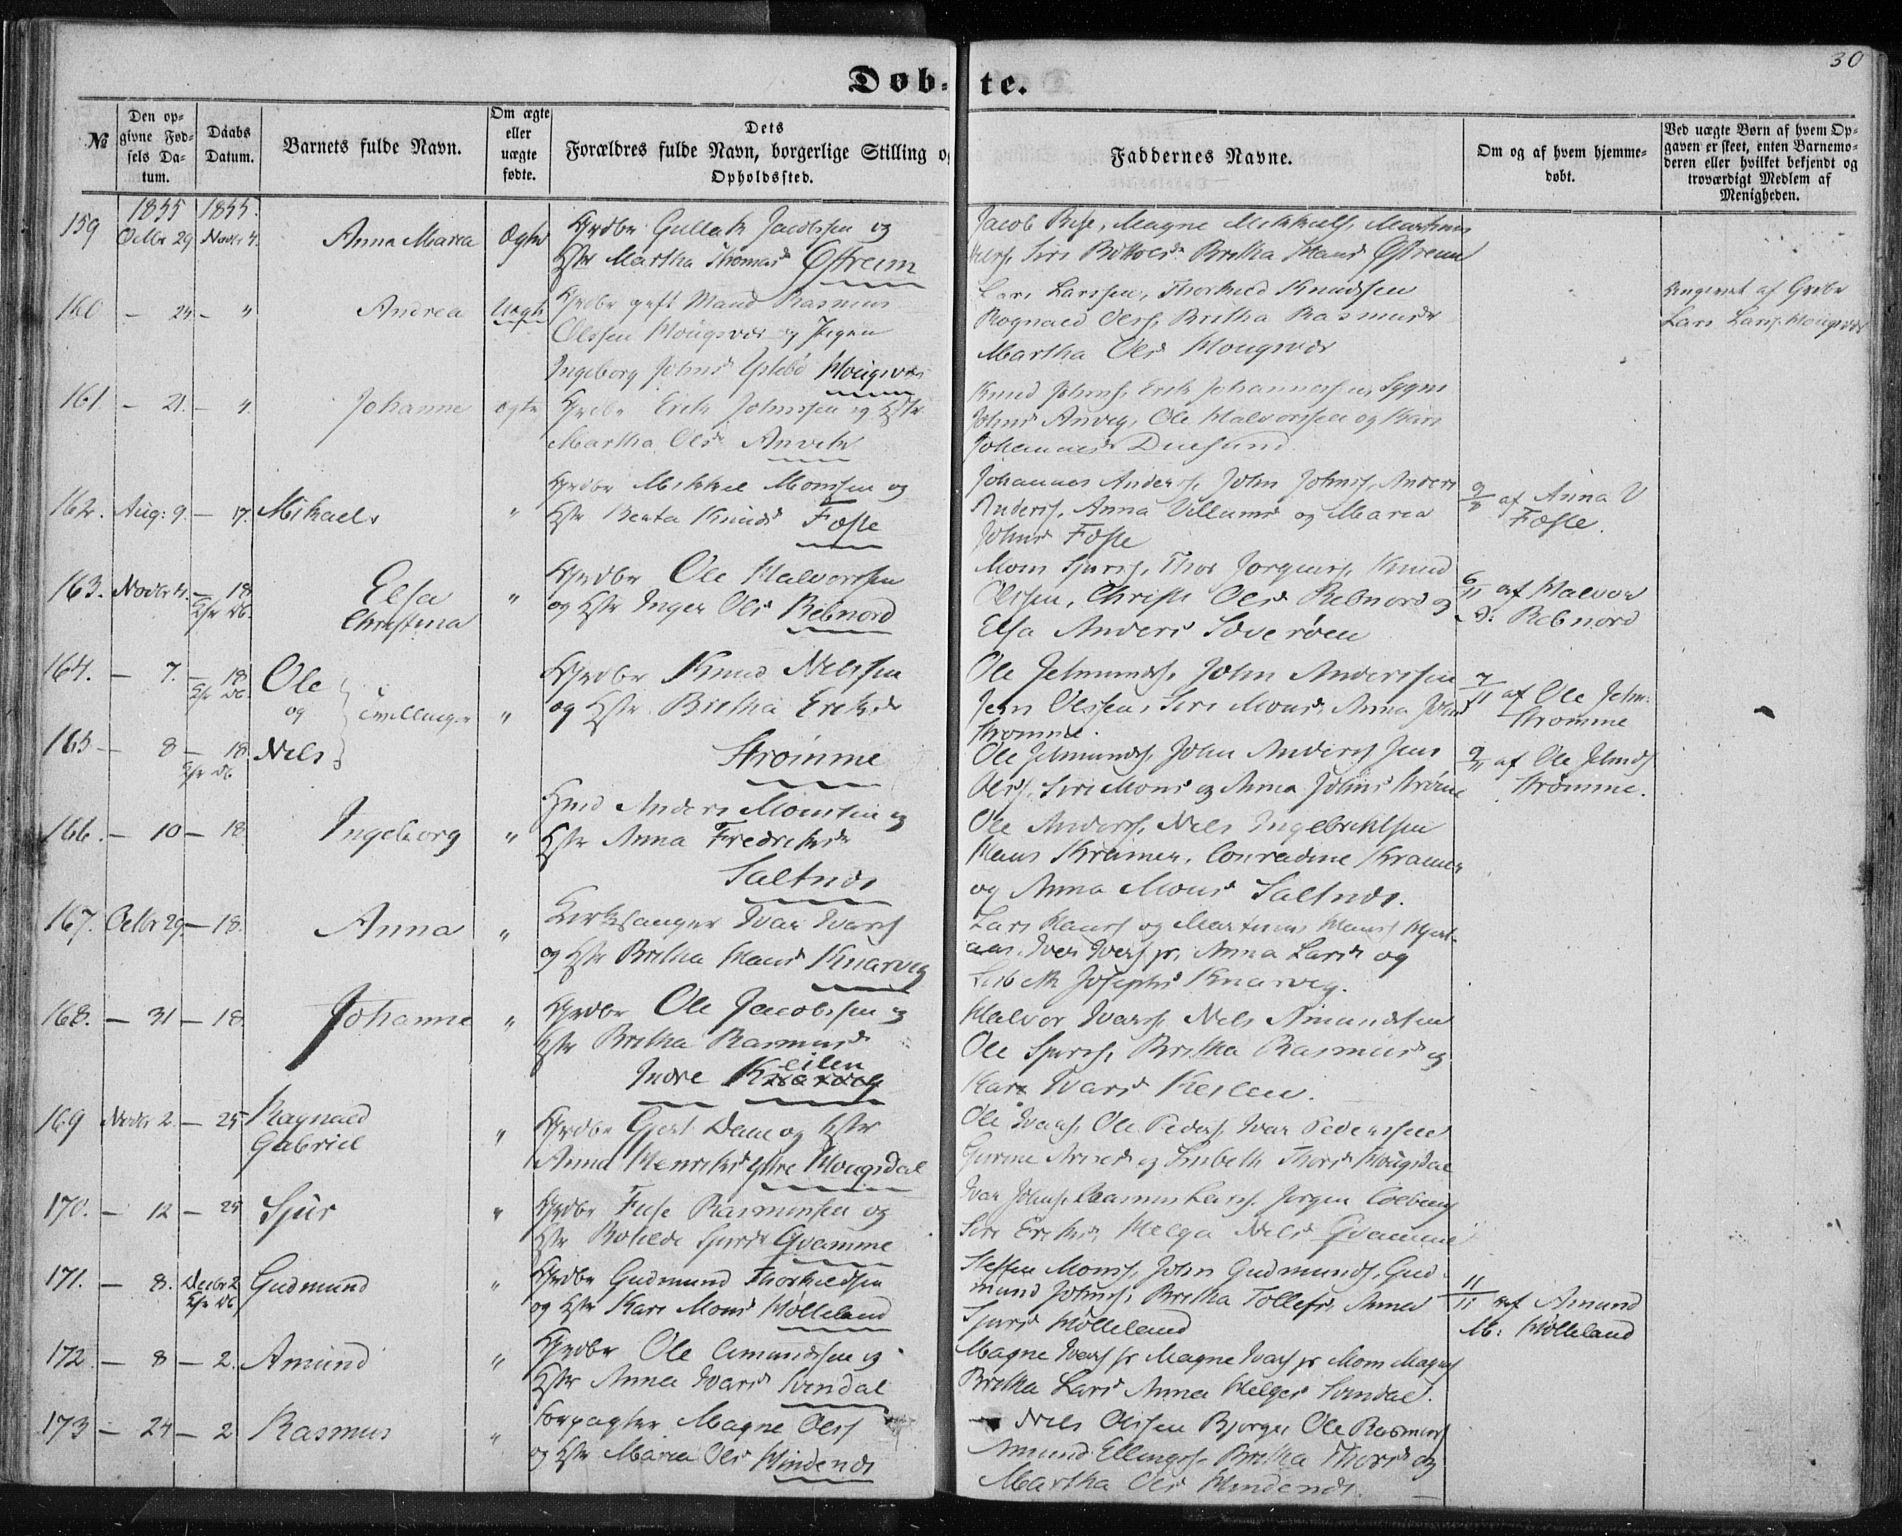 30
Døb-te.
№
Den opgivne Fødsels Datum.
Daabs Datum.
Barnets fulde Navn.
Om ægte eller uægte fødte.
Dets Forældres fulde Navn, borgerlige Stilling og Opholdssted.
Faddernes Navne.
Om og af hvem hjemmedøbt.
Ved uægte Børn af hvem Opgaven er skeet, enten Barnemoderen eller hvilket bekjendt og troværdigt Medlem af Menigheden.
1855 1855.
159 Octbr 29 Novbr 4. Anna Maria Ægte Grdbr Gullak Jacobsen og
Hstr Martha Thomasd Østreim
Jacob Magne Mikkels.
Siri Brithe Hansd Østreim
160 — 24 — " Andrea Uægte Grdbr gift Mand Rasmus
Olssen Hougsvær og Pigen
Ingeborg Johnsd Hougsvær
Lars Larssen, Thorkild Knudssen
Rognald Olss, Britha Rasmusd
Martha Olsd Hougsvær
Angivet af Grdbr
Lars Larss. Hougsvær
161. — 21. — " Johanne ægte Grdbr Erik Johnssen og Hstr
Martha Olsd Anvik
Knud Johnss, Erik Johannessen,
Johnsd Anvig, Ole Halvorssen og Kari
Johannesd Duesund
162. Aug: 9. — " Mikael " Grdbr Mikkel Monssen og
Hstr Berta Knudsd Foste
Johannes Anderss, John Johnss, Anders
Anderss, Anna Villumsd og Maria
Johnsd Foste
af Anna V
Foste.
163. Novbr 4. — 18 Elsa
Christina " Grdbr Ole Halvorssen
og Hstr Inger Olsd Rebnord
Mons Sjurss, Thor Jørgens, Knud
Olssen, Christi Olsd Rebnord og
Elsa Andersd Soverøen
6/11 af Halvor
S: Rebnord
164. — 7. — 18 Ole
og tvillinger " Grdbr Knud Nilssen
og Hstr Britha Eriksd
Strømme
Ole Jelmunds, John Anderssen
Jens Olssen, Siri Monsd, Anna Johnsd
Strømme.
7/11 af Ole Jelm:
Strømme
165 — 8 — 18. Nils
Ole Jelmunds, John Anderss Jens
Olss, Siri Monsd og Anna Johnsd Strømme
9/11 af Ole Jelmds
Strømme.
166. — 10 — 18. Ingeborg " Hmd Anders Monssen og
Hstr Anna Fredriksd
Saltnæs
Ole Anderss, Nils Ingebrichtsen
Hans Kramer, Conradine Kramer
og Anna Monsd Saltnæs.
167. Octbr 29. — 18. Anna " Kirksanger Ivar Ivarss
og Hstr Britha Hansd Knarvig
Lars Hanss og Martinus Hanss
Iver Iverss jr. Anna Larsd og
Lisbeth Josephsd Knarvig.
168. — 31 — 18. Johanne " Grdbr Ole Jacobssen og
Hstr Britha Rasmusd
Indre Keilen
Halvor Ivarss, Nils Amundssen
Ole Sjurss, Britha Rasmusd og
Kari Ivarsd Keilen.
169 Novbr 2. — 25 Ragnald
Gabriel " Grdbr Gjert Dam og Hstr
Anna Henriksd Hougsdal
Ole Ivarss, Ole Peders, Ivar Pederssen
Gurine og Lisbeth Thorsd Hougsdal
170. — 12 — 25 Sjur " Grdbr Rasmussen og
Hstr Botilde Sjursd Qvamme
Ivar Johnss, Rasmus Larss, Jørgen
Siri Eriksd, Helga Nilsd Qvamme
171. — 8. Decbr 2 Gudmund " Grdbr Gudmund Thorkildsen
og Hstr Kari Monsd Hølleland
Steffen Monss, John Gudmunds, Gudmund
Johnss, Britha Tollefsd, Anna
Sjursd Hølleland
11/11 af Amund
M: Hølleland
172. — 8 — 2. Amund " Grdbr Ole Amundssen og
Hstr Anna Ivarsd Svindal
Magne Ivarss jr Magne Ivarss jr Mons Magness
Britha Larsd Anna Helgesd Svindal.
173 — 24 — 2 Rasmus " Forpagter Magne Olss
og Hstr Maria Olsd Hindenæs
Nils Olssen Bjorge, Ole Rasmuss
Amund Ellings, Britha Thorsd og
Martha Olsd Hindenæs.